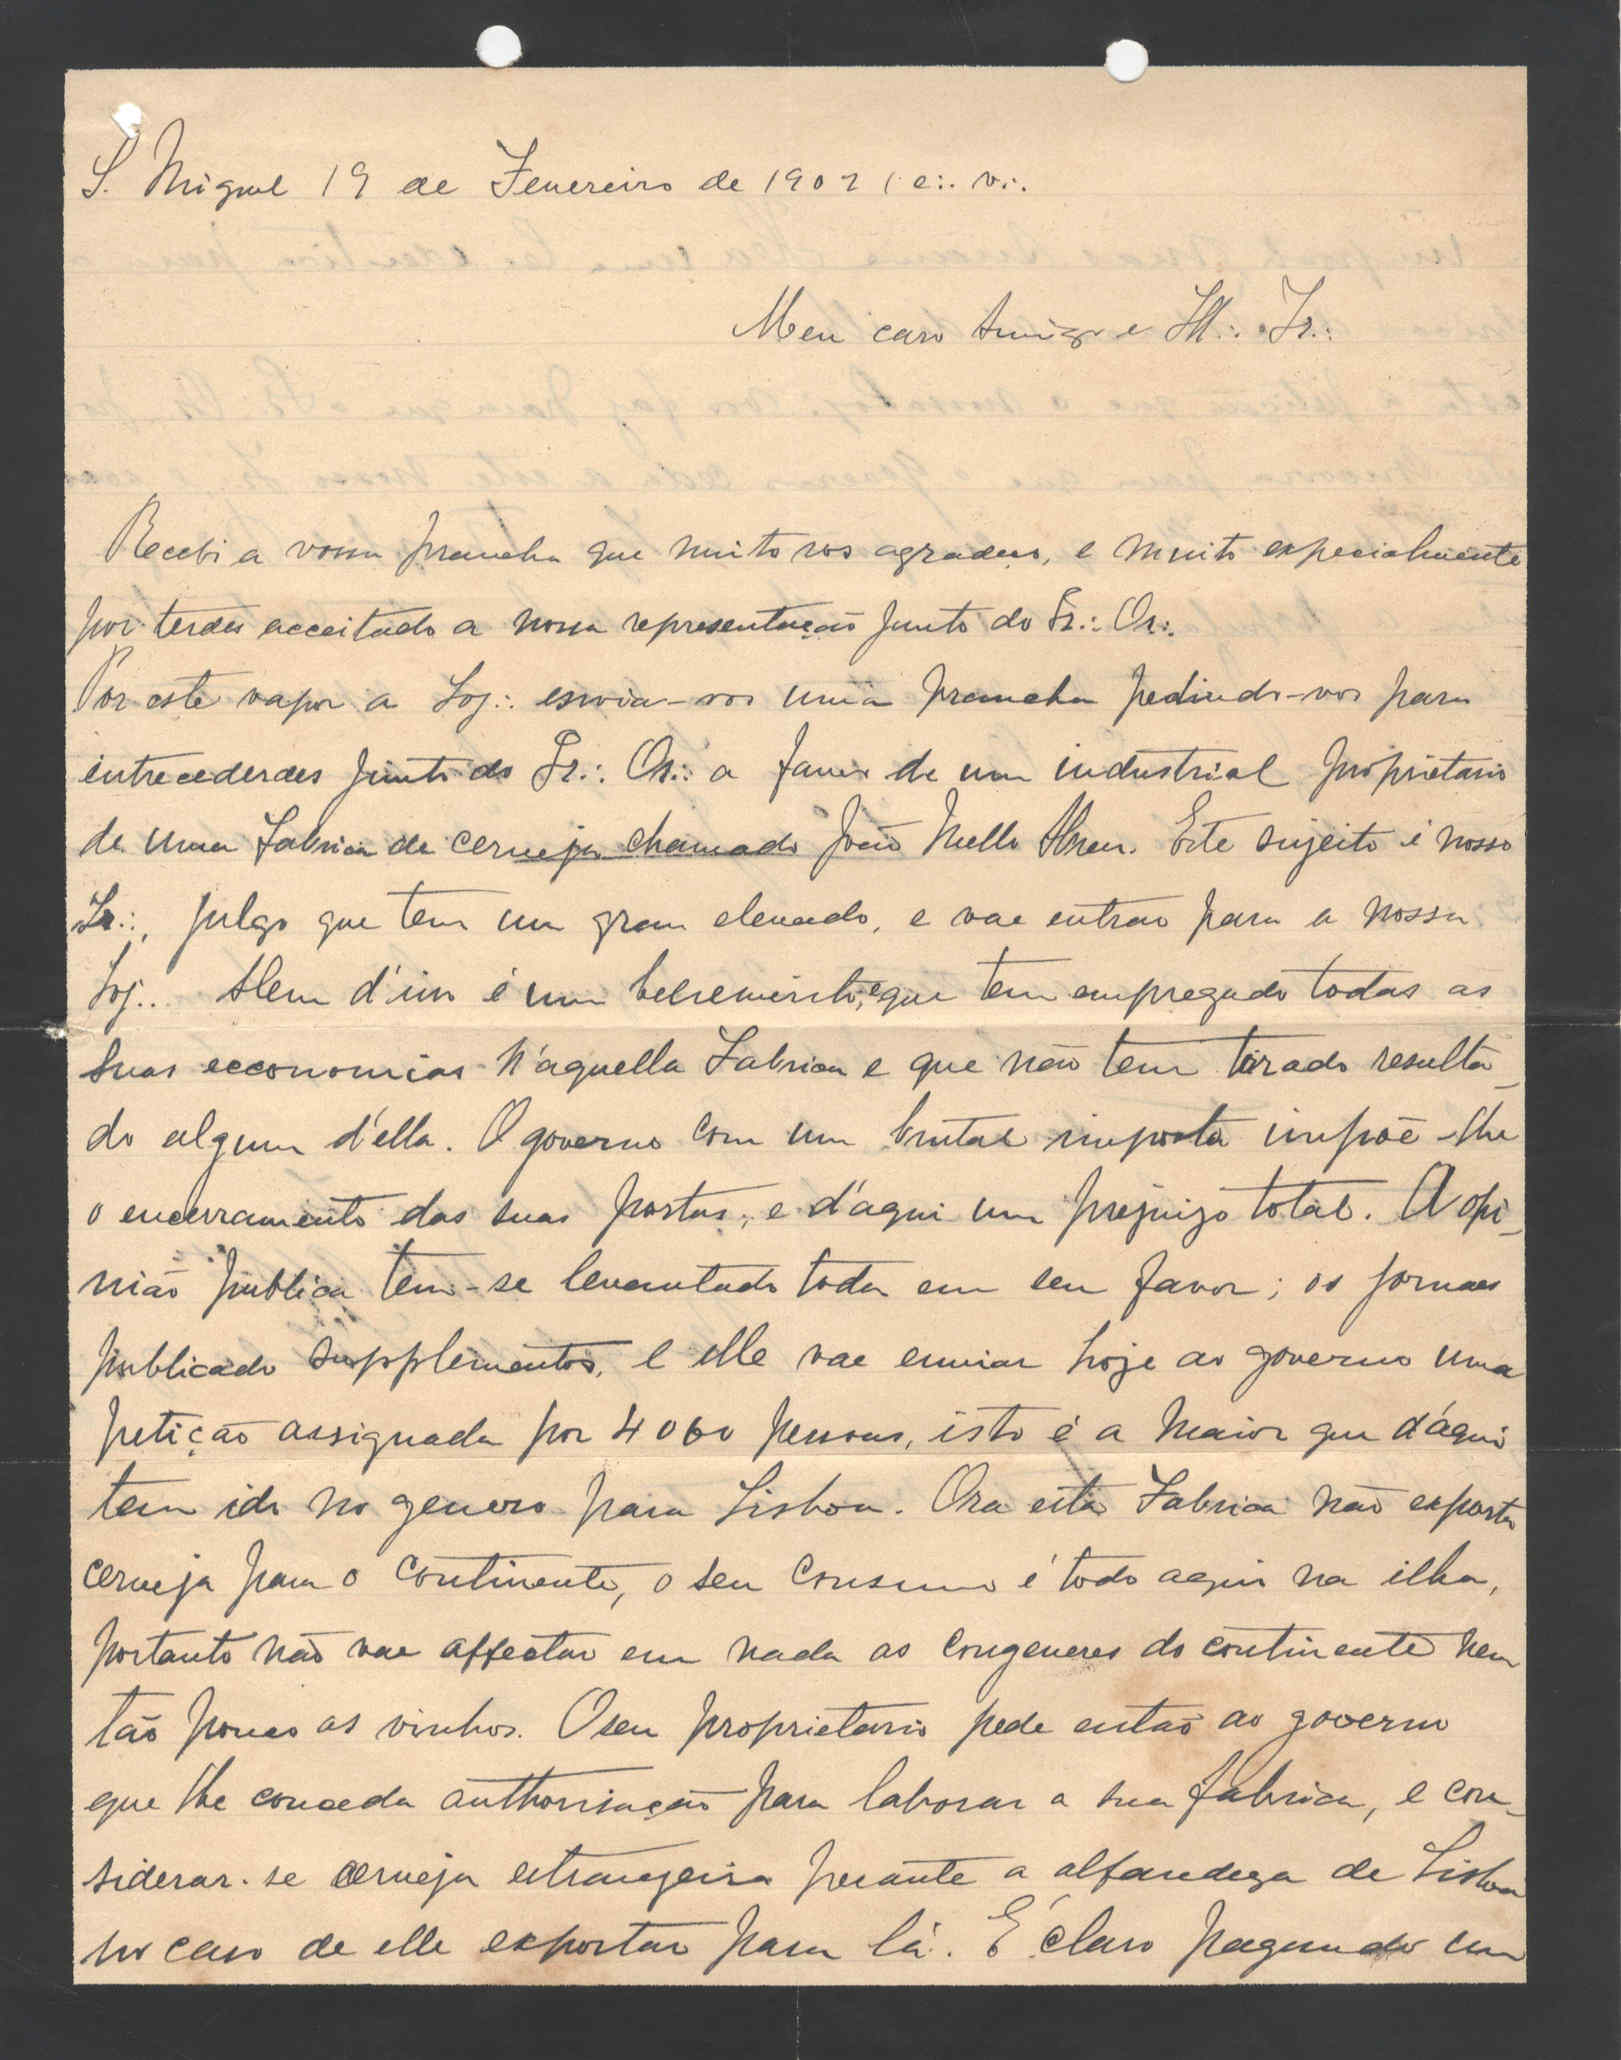 S. Miguel 19 de Fevereiro de 1902 (e∴ v∴
Meu caro Amigo e Ill∴ Ir∴
Recebi a vossa prancha que muito vos agradeço, e muito especialmente
por terdes acceitado a nossa representação junto do Gr∴ Or∴
Por este vapor a Loj∴ envia-vos uma prancha pedindo-vos para
entrecederdes junto do Gr∴ Or∴ a favor de um industrial proprietario
de uma Fabrica de cerveja chamado João Mello Abreu. Este sujeito é nosso
Ir∴, julgo que tem um grau elevado, e vae entrar para a nossa
Loj∴. Alem d'isso é um benemerito, e que tem empregado todas as
suas economias n'aquella Fabrica e que não tem tirado resulta-
do algum d'ella. O governo com um brutal imposto impõe-lhe
o encerramento das suas portas, e d'aqui um prejuizo total. A opi-
nião publica tem-se levantado toda em seu favor; os jornaes
publicado supplementos, e elle vae enviar hoje ao governo uma
petição assignada por 4060 pessoas, isto é a maior que d'áqui
tem ido no genero para Lisboa. Ora esta Fabrica não exporta
cerveja para o continente, o seu consumo é todo aqui na ilha,
portanto não vae affectar em nada as congeneres do continente nem
tão pouco os vinhos. O seu proprietario pede então ao governo
que lhe conceda authorisação para laborar a sua fabrica, e con-
siderar-se cerveja estrangeira perante a alfandega de Lisboa
no caso de elle exportar para lá. É claro pagando um